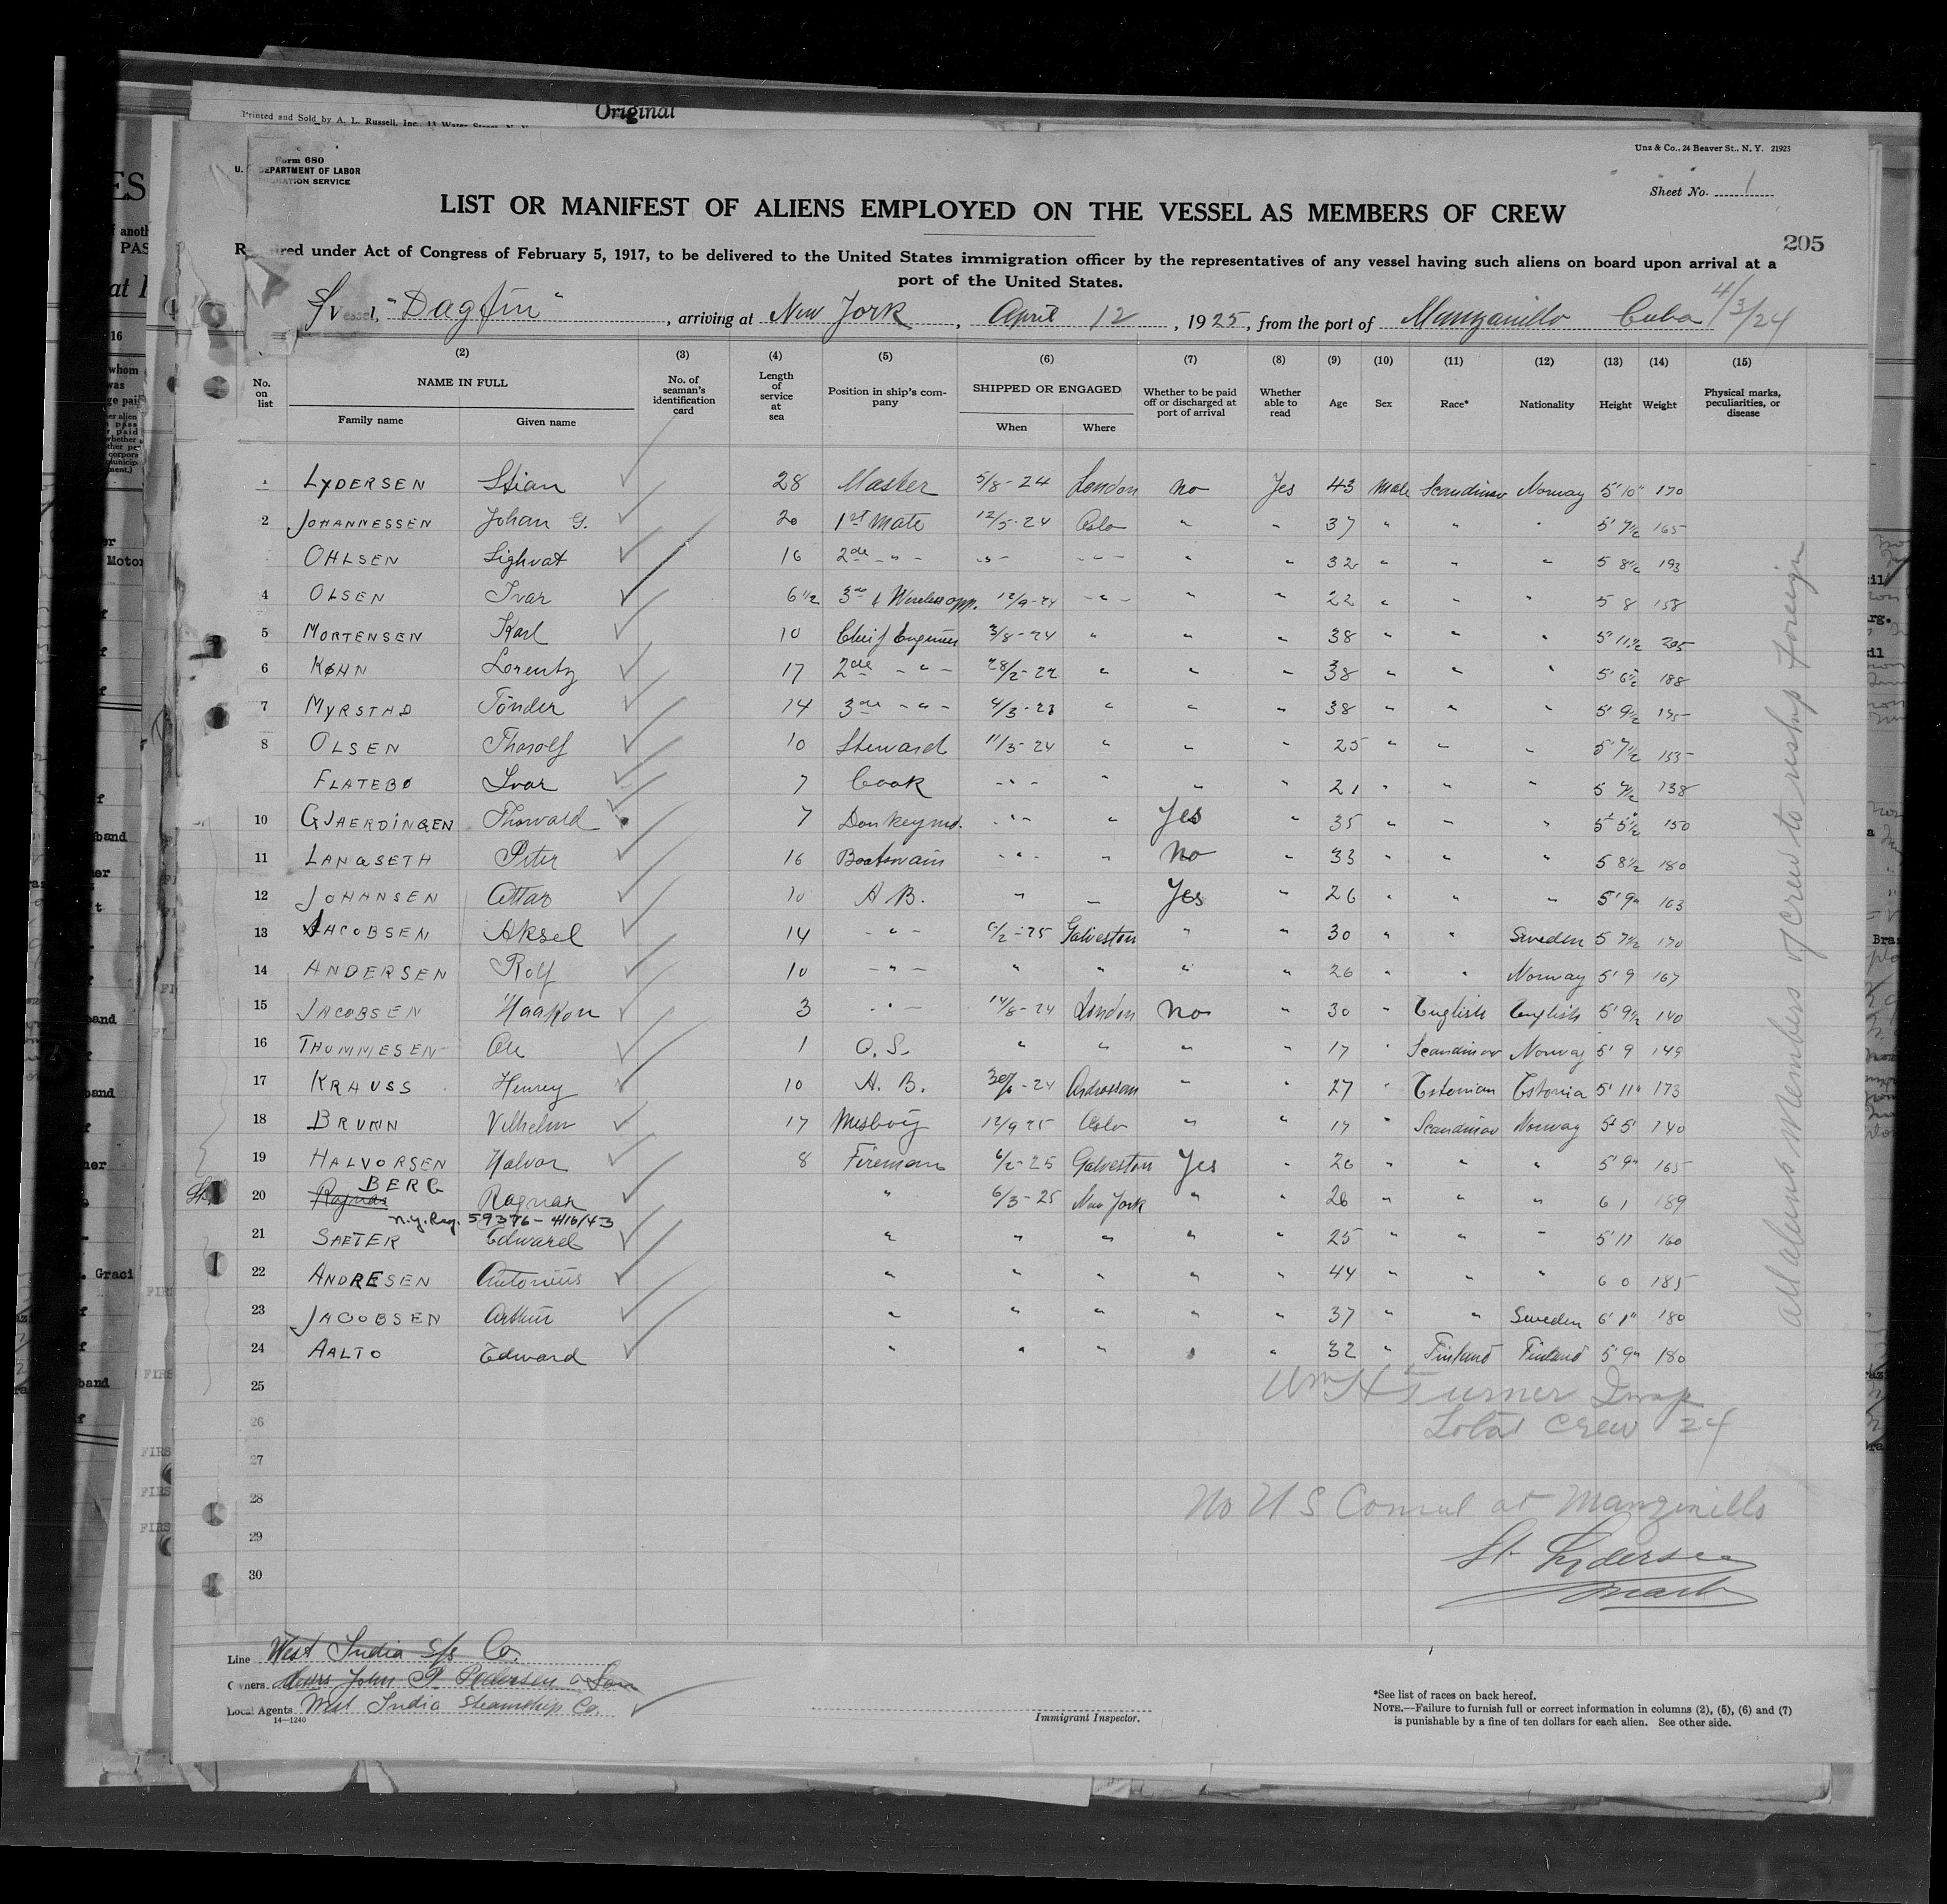 Original
Printed and Sold by A. L. Russell, Inc.,
Form 680
U. DEPARTMENT OF LABOR
IMMIGRATION SERVICE
Unz & Co., 24 Beaver St., N. Y. 21923
Sheet No. 1
LIST OR MANIFEST OF ALIENS EMPLOYED ON THE VESSEL AS MEMBERS OF CREW
205
Required under Act of Congress of February 5, 1917, to be delivered to the United States immigration officer by the representatives of any vessel having such aliens on board upon arrival at a
port of the United States.
Vessel, "Dagfin", arriving at New York, April 12, 1925, from the port of Manzanillo Cuba 4/3/24
(2) (3) (4) (5) (6) (7) (8) (9) (10) (11) (12) (13) (14) (15)
No. on list NAME IN FULL Family name Given name No. of seaman's identification card Length of service at sea Position in ship's company SHIPPED OR ENGAGED When Where Whether to be paid off or discharged at port of arrival Whether able to read Age Sex Race* Nationality Height Weight Physical marks, peculiarities, or disease
1 LYDERSEN Stian 28 Master 5/8-24 London no Yes 43 Male Scandinav Norway 5'10" 170
2 JOHANNESSEN Johan G. 20 1st Mate 12/5-24 Oslo " " 37 " " " 5' 7½ 165
OHLSEN Sighvat 16 2de - " - -"- - " - " " 32 " " " 5 8½ 193
4 OLSEN Ivar 6½ 3rd & Wireless opp. 12/9-24 - " - " " 22 " " " 5 8 158
5 MORTENSEN Karl 10 Chief Engineer 3/8-24 " " " 38 " " " 5' 11½ 205
6 KØHN Lorentz 17 2de - " - 28/2-22 " " " 38 " " " 5' 6½ 188
7 MYRSTAD Tönder 14 3de - " - 4/3-23 " " " 38 " " " 5' 9½
8 OLSEN Thorolf 10 Steward 11/5-24 " " " 25 " " " 5' 7½ 155
FLATEBØ Ivar 7 Cook - " - " " " 21 " " " 138
10 GJAERDINGEN Thorvald 7 Donkeymd. - " - " Yes " 35 " " " 5' 5½ 150
11 LANGSETH Peter 16 Boatswain - " - " No " 33 " " " 5 8½ 180
12 JOHANSEN Ottar 10 A B. " " Yes " 26 " " " 5' 9" 163
13 JACOBSEN Aksel 14 - " - 6/2-25 Galveston " " 30 " " Sweden 5 7½ 170
14 ANDERSEN Rolf 10 - " - " " " " 26 " " Norway 5' 9 167
15 JACOBSEN Haakon 3 - " - 14/8-24 London No " 30 " English English 5' 9½ 140
16 THOMMESEN Ole 1 O. S. " " " " 17 " Scandinav Norway 5' 9 149
17 KRAUSS Henry 10 A. B. Ardrossan " " 27 " Estonian Estonia 5' 11" 173
18 BRUNN Vilhelm 17 Messboy 12/9 25 Oslo " " 17 " Scandinav Norway 5' 5' 140
19 HALVORSEN Halvor 8 Fireman 6/2-25 Galveston Yes " 26 " " " 5' 9" 165
20 Ragnar BERG Ragnar " 6/3-25 New York " " 26 " " " 6 1 189
N.Y. Reg. 59376-4/16/43
21 SAETER Edward " " " " " 25 " " " 5' 11 160
22 ANDRESEN Antonius " " " " " 44 " " " 6 0 185
23 JACOBSEN Arthur " " " " " 37 " " Sweden 6' 1" 180
24 AALTO Edward " " " " " 32 " Finland Finland 5' 9" 180
25
26
27
28
29
30
Wm H Turner Insp
Total crew 24
No U S Consul at Manzinillo
St. Lydersen
Master
All aliens members of crew to reship foreign
Line West India S/S Co.
Owners. Messrs John P. Pedersen & Son
Local Agents West India Steamship Co.
14—1240
Immigrant Inspector.
*See list of races on back hereof.
NOTE.—Failure to furnish full or correct information in columns (2), (5), (6) and (7)
is punishable by a fine of ten dollars for each alien. See other side.